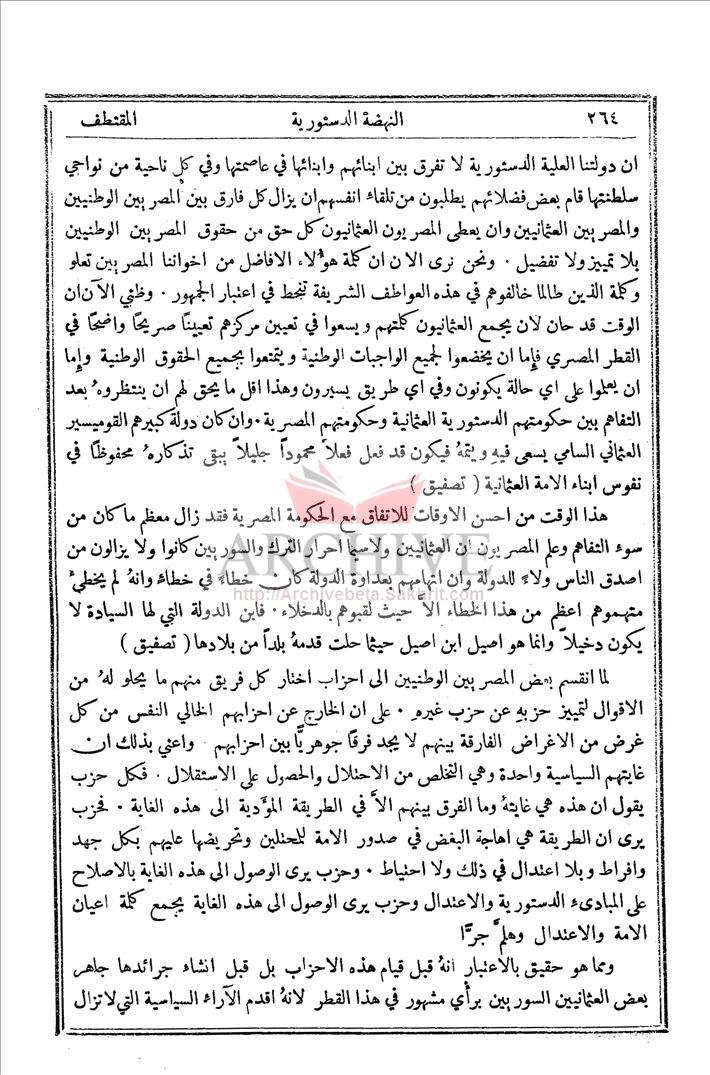 ٢٦٤ النهضة الدستورية المقتطف
ان دولتنا العلية الدستورية لا تفرق بين ابنائهم وابنائها في عاصمتها وفي كل ناحية من نواحي
سلطنتها قام بعض فضلائهم يطلبون من تلقاء انفسهم ان يزال كل فارق بين المصريين الوطنيين
والمصريين العثمانيين وان يعطى المصريون العثمانيون كل حق من حقوق المصريين الوطنيين
بلا تمييز ولا تفضيل . ونحن نرى الان ان كلمة هؤلاء الافاضل من اخواننا المصريين تعلو
وكلمة الذين طالما خالفوهم في هذه العواطف الشريفة تنحط في اعتبار الجمهور . وظني الآن ان
الوقت قد حان لان يجمع العثمانيون كلمتهم ويسعوا في تعيين مركزهم تعييناً صريحاً واضحاً في
القطر المصري فإما ان يخضعوا لجميع الواجبات الوطنية ويتمتعوا بجميع الحقوق الوطنية وإما
ان يعملوا على اي حالة يكونون وفي اي طريق يسيرون وهذا اقل ما يحق لهم ان ينتظروهُ بعد
التفاهم بين حكومتهم الدستورية العثمانية وحكومتهم المصرية . وان كان دولة كبيرهم القوميسير
العثماني السامي يسعى فيهِ ويتمهُ فيكون قد فعل فعلاً محموداً جليلاً يبقى تذكارهُ محفوظاً في
نفوس ابناء الامة العثمانية ( تصفيق )
هذا الوقت من احسن الاوقات للاتفاق مع الحكومة المصرية فقد زال معظم ما كان من
سوء التفاهم وعلم المصريون ان العثمانيين ولاسيما احرار الترك والسوريين كانوا ولا يزالون من
ARCHIVE
اصدق الناس ولاءً للدولة وان اتهامهم بعداوة الدولة كان خطاءً في خطاءٍ وانهُ لم يخطئ
http://Archivebeta.Sakhrit.com
متهموهم اعظم من هذا الخطاء الاَّ حيث لقبوهم بالدخلاء . فابن الدولة التي لها السيادة لا
يكون دخيلاً وانما هو اصيل ابن اصيل حيثما حلت قدمهُ بلداً من بلادها ( تصفيق )
لما انقسم بعض المصريين الوطنيين الى احزاب اختار كل فريق منهم ما يحلو لهُ من
الاقوال لتمييز حزبهِ عن حزب غيرهِ . على ان الخارج عن احزابهم الخالي النفس من كل
غرض من الاغراض الفارقة بينهم لا يجد فرقاً جوهريًّا بين احزابهم واعني بذلك ان
غايتهم السياسية واحدة وهي التخلص من الاحتلال والحصول على الاستقلال . فكل حزب
يقول ان هذه هي غايتهُ وما الفرق بينهم الاَّ في الطريقة المؤدية الى هذه الغاية . فحزب
يرى ان الطريقة هي اهاجة البغض في صدور الامة للمحتلين وتحريضها عليهم بكل جهد
وافراط وبلا اعتدال في ذلك ولا احتياط . وحزب يرى الوصول الى هذه الغاية بالاصلاح
على المبادىء الدستورية والاعتدال وحزب يرى الوصول الى هذه الغاية بجمع كلمة اعيان
الامة والاعتدال وهلمَّ جرًّا
ومما هو حقيق بالاعتبار انهُ قبل قيام هذه الاحزاب بل قبل انشاء جرائدها جاهر
بعض العثمانيين السوريين برأي مشهور في هذا القطر لانهُ اقدم الآراء السياسية التي لا تزال